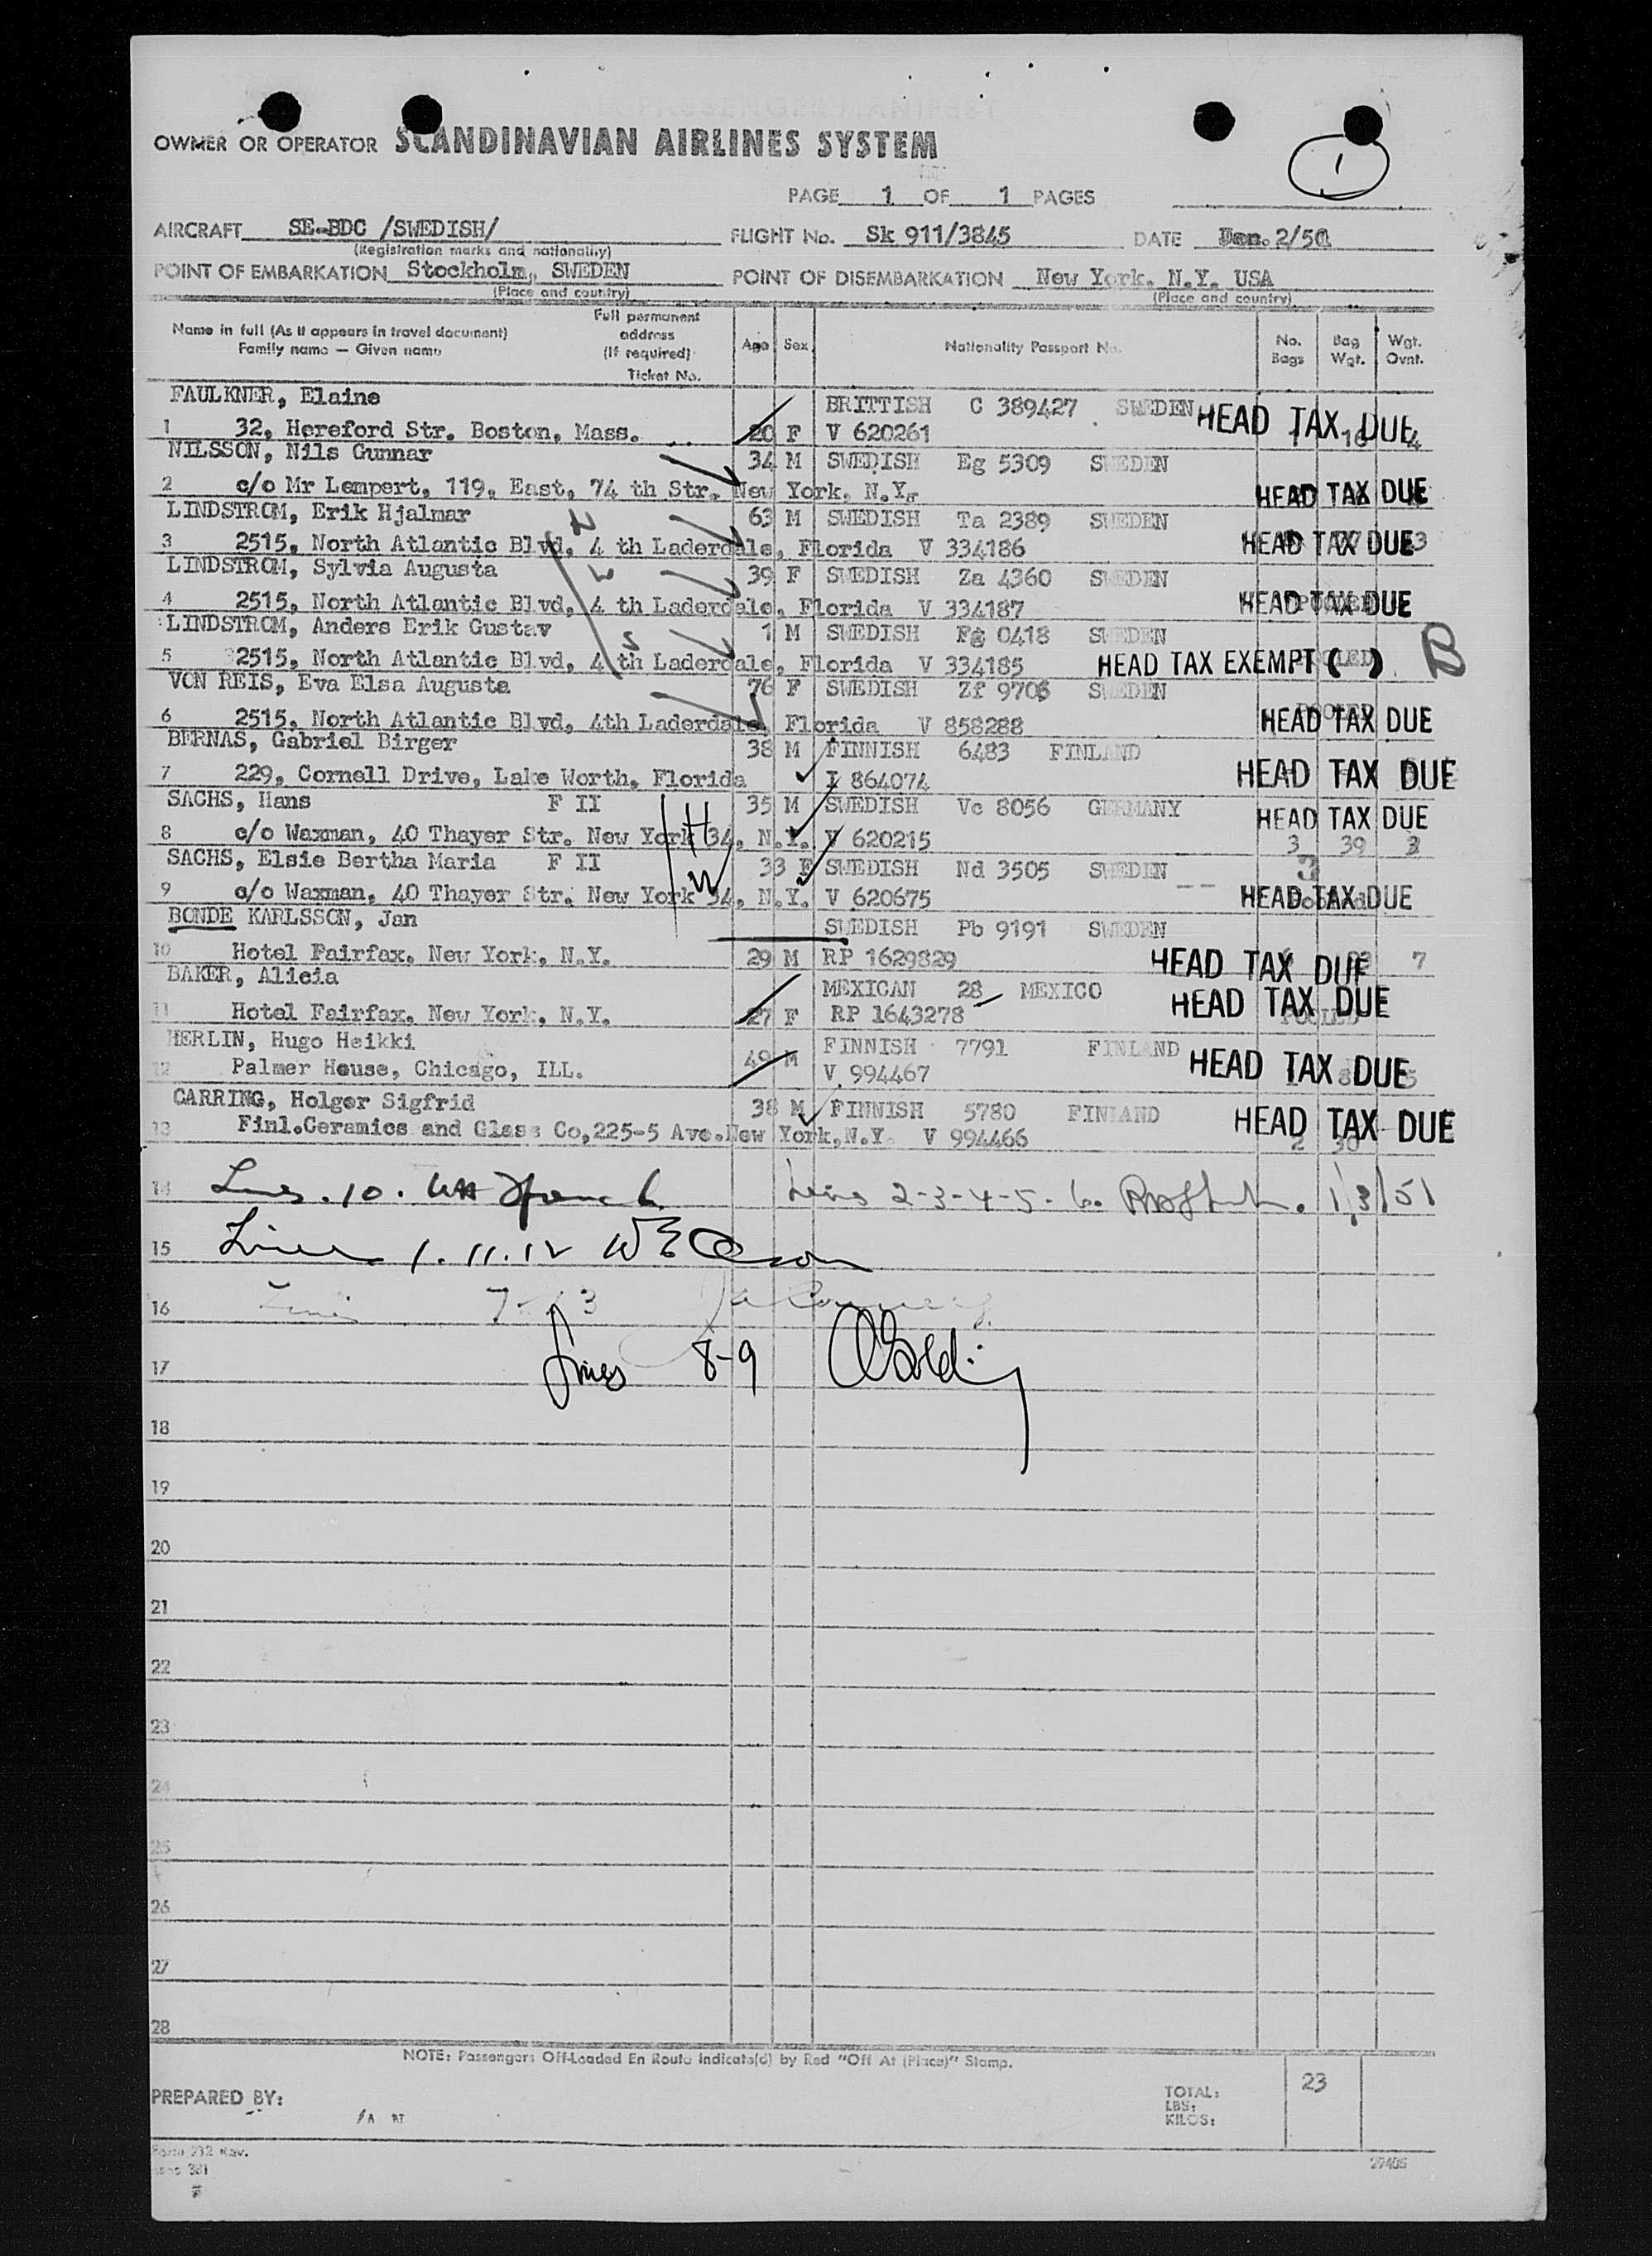 OWNER OR OPERATOR SCANDINAVIAN AIRLINES SYSTEM
1
PAGE 1 OF 1 PAGES
AIRCRAFT SE-BDC /SWEDISH/ FLIGHT No. Sk 911/3845 DATE Jan. 2/51
(Registration marks and nationality)
POINT OF EMBARKATION Stockholm, SWEDEN POINT OF DISEMBARKATION New York, N.Y. USA
(Place and country) (Place and country)
Name in full (As it appears in travel document) Family name — Given name Full permanent address (If required) Ticket No. Age Sex Nationality Passport No. No. Bags Bag Wgt. Wgt. Ovnt.
FAULKNER, Elaine BRITTISH C 389427 SWEDEN HEAD TAX DUE
1 32, Hereford Str. Boston, Mass. ... 20 F V 620261 1 16 4
NILSSON, Nils Gunnar 34 M SWEDISH Eg 5309 SWEDEN
2 c/o Mr Lempert, 119, East, 74 th Str. New York, N.Y. HEAD TAX DUE
LINDSTROM, Erik Hjalmar 63 M SWEDISH Ta 2389 SWEDEN
3 2515, North Atlantic Blvd, 4 th Laderdale, Florida V 334186 HEAD TAX DUE 3
LINDSTROM, Sylvia Augusta 39 F SWEDISH Za 4360 SWEDEN
4 2515, North Atlantic Blvd, 4 th Laderdale, Florida V 334187 POOLED HEAD TAX DUE
LINDSTROM, Anders Erik Gustav 1 M SWEDISH Fg 0418 SWEDEN
5 2515, North Atlantic Blvd, 4 th Laderdale, Florida V 334185 POOLED HEAD TAX EXEMPT ( ) B
VON REIS, Eva Elsa Augusta 76 F SWEDISH Zf 9706 SWEDEN
6 2515, North Atlantic Blvd, 4th Laderdale, Florida V 858288 POOLED HEAD TAX DUE
BERNAS, Gabriel Birger 38 M FINNISH 6483 FINLAND
7 229, Cornell Drive, Lake Worth, Florida I 864074 HEAD TAX DUE
SACHS, Hans F II 35 M SWEDISH Vc 8056 GERMANY HEAD TAX DUE
8 c/o Waxman, 40 Thayer Str. New York 34, N.Y. V 620215 3 39 3
H
SACHS, Elsie Bertha Maria F II 33 F SWEDISH Nd 3505 SWEDEN 3
9 c/o Waxman, 40 Thayer Str. New York 34, N.Y. V 620675 Pooled HEAD TAX DUE
W
BONDE KARLSSON, Jan SWEDISH Pb 9191 SWEDEN
10 Hotel Fairfax, New York, N.Y. 29 M RP 1629829 HEAD TAX DUE 7
BAKER, Alicia MEXICAN 28 MEXICO
11 Hotel Fairfax, New York, N.Y. 27 F RP 1643278 POOLED HEAD TAX DUE
HERLIN, Hugo Heikki FINNISH 7791 FINLAND
12 Palmer House, Chicago, ILL. 49 M V 994467 HEAD TAX DUE 5
CARRING, Holger Sigfrid 38 M FINNISH 5780 FINLAND HEAD TAX DUE
13 Finl.Ceramics and Glass Co,225-5 Ave.New York,N.Y. V 994466 2 30
14 Lines 2-3-4-5-6. 1/3/51
15 Lines 1.11.12
16 Lines
17 Lines 8-9
18
19
20
21
22
23
24
25
26
27
28
NOTE: Passengers Off-Loaded En Route Indicate(d) by Red "Off At (Place)" Stamp.
PREPARED BY: TOTAL: 23
LBS:
KILOS:
Form 212 Rev.
27405